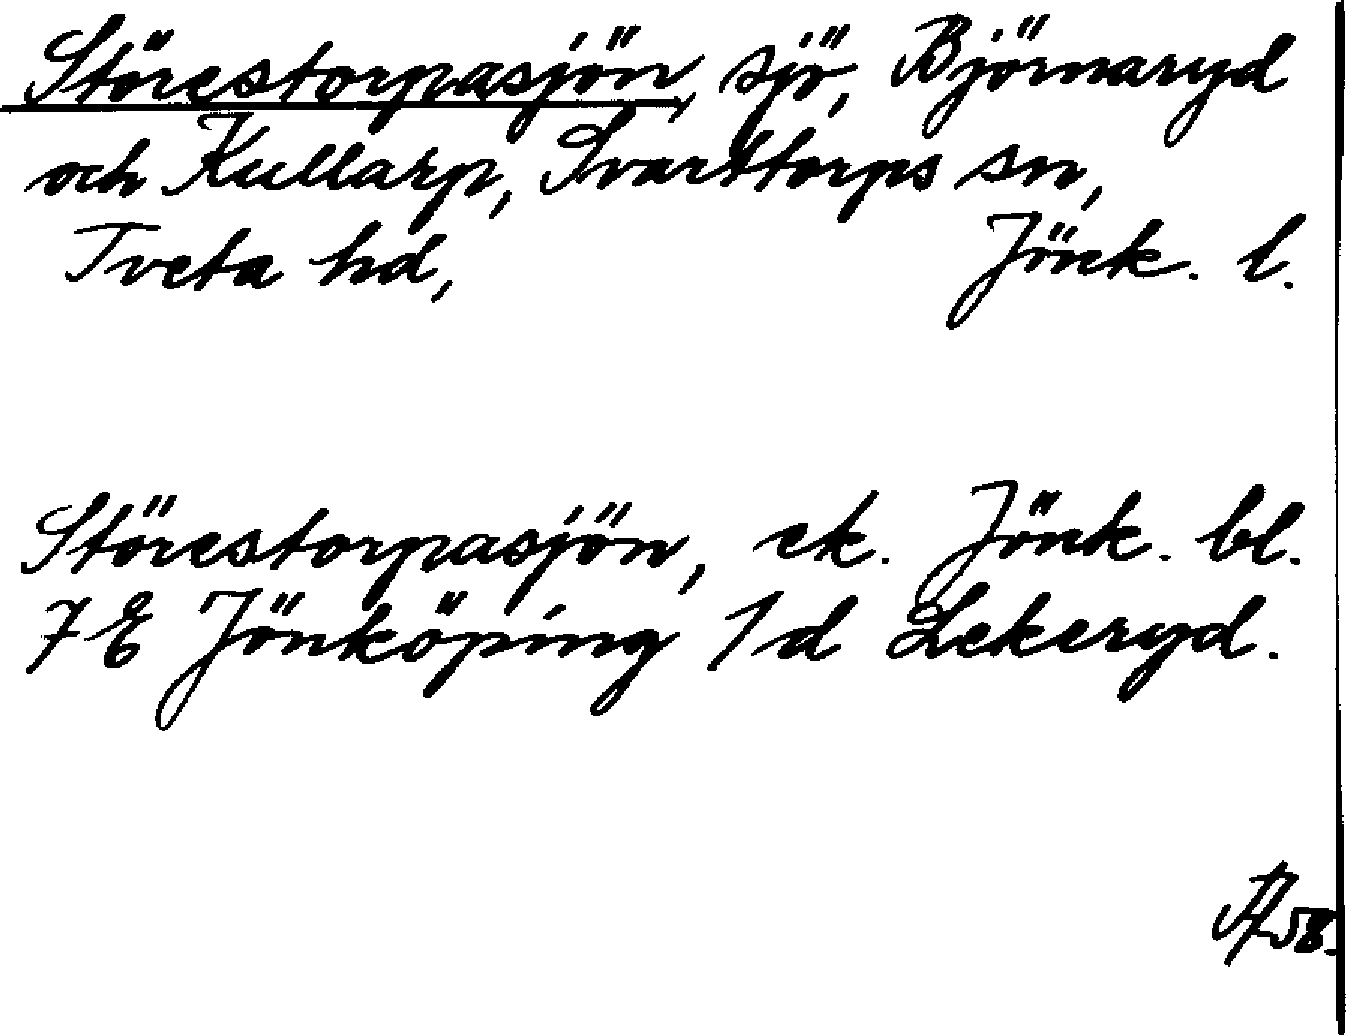 Störestorpasjön, sjö, Björnaryd
och Kullarp, Svarttorps sn,
Tveta hd, Jönk. l.
Störestorpasjön, ek. Jönk. bl.
7E Jönköping 1d Lekeryd.
58.